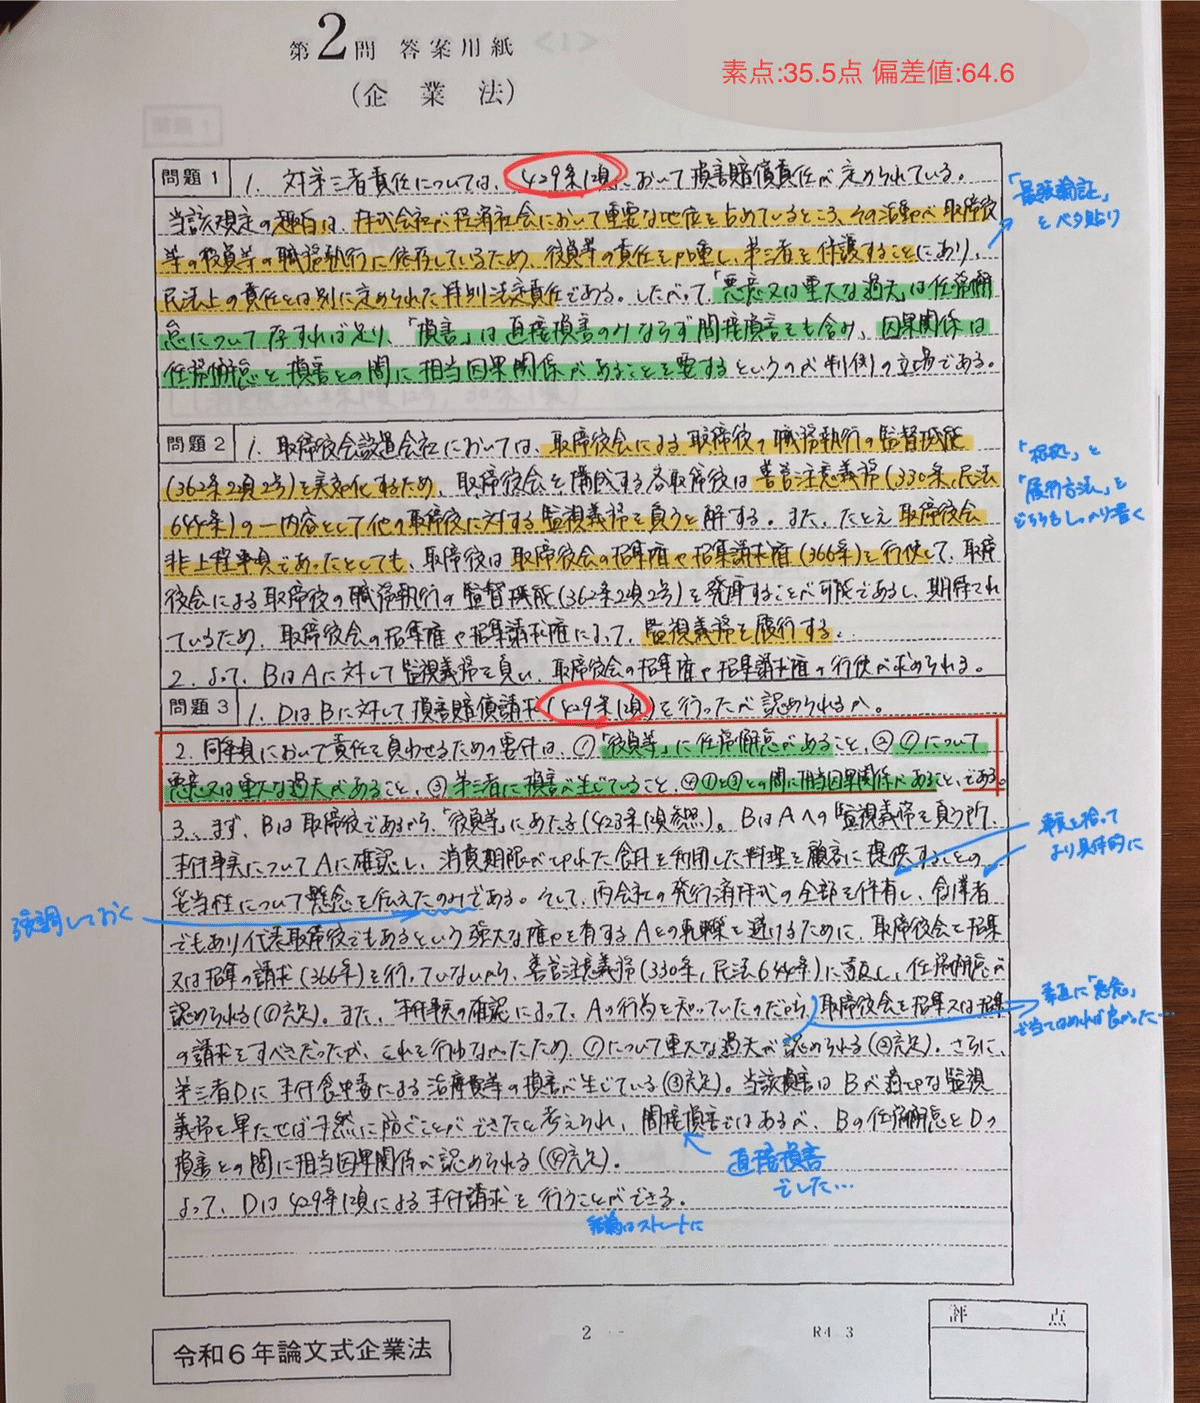 第2問 答案用紙
(企業法)
素点:35.5点 偏差値:64.6
問題1
1. 対第三者責任については、429条1項において損害賠償責任が定められている。
当該規定の趣旨は、株式会社が経済社会において重要な地位を占めているところ、その活動が取締役
等の役員等の職務執行に依存しているため、役員等の責任を加重し、第三者を保護することにあり、
民法上の責任とは別に定められた特別法定責任である。したがって、「悪意又は重大な過失」は任務懈
怠について存すれば足り、「損害」は直接損害のみならず間接損害をも含み、因果関係は
任務懈怠と損害との間に相当因果関係があることを要するというのが判例の立場である。
「最強論証」
をベタ貼り
問題2
1. 取締役会設置会社においては、取締役会による取締役の職務執行の監督機能
(362条2項2号)を実効化するため、取締役会を構成する各取締役は善管注意義務(330条,民法
644条)の一内容として他の取締役に対する監視義務を負うと解する。また、たとえ取締役会
非上程事項であったとしても、取締役は取締役会の招集権や招集請求権(366条)を行使して、取締
役会による取締役の職務執行の監督機能(362条2項2号)を発揮することが可能であるし、期待され
ているため、取締役会の招集権や招集請求権によって、監視義務を履行する。
2. よって、BはAに対して監視義務を負い、取締役会の招集権や招集請求権の行使が求められる。
「根拠」と
「履行方法」を
どちらもしっかり書く
問題3
1. DはBに対して損害賠償請求(429条1項)を行ったが認められるか。
2. 同条項において責任を負わせるための要件は、①「役員等」に任務懈怠があること、②①について
悪意又は重大な過失があること、③第三者に損害が生じていること、④①と③との間に相当因果関係があること、である。
3. まず、Bは取締役であるから、「役員等」にあたる(423条1項参照)。BはAへの監視義務を負う所、
本件事実についてAに確認し、消費期限が切れた食材を利用した料理を顧客に提供することの
妥当性について懸念を伝えたのみである。そして、丙会社の発行済株式の全部を保有し、創業者
でもあり代表取締役でもあるという強大な権力を有するAとの軋轢を避けるために、取締役会を招集
又は招集の請求(366条)を行っていないから、善管注意義務(330条,民法644条)に違反し、任務懈怠が
認められる(①充足)。また、本件事実の確認によって、Aの行為を知っていたのだから、取締役会を招集又は招集
の請求をすべきだったが、これを行わなかったため、①について重大な過失が認められる(②充足)。さらに、
第三者Dに本件食中毒による治療費等の損害が生じている(③充足)。当該損害はBが適切な監視
義務を果たせば未然に防ぐことができたと考えられ、間接損害ではあるが、Bの任務懈怠とDの
損害との間に相当因果関係が認められる(④充足)。
よって、Dは429条1項による本件請求を行うことができる。
事実を拾って
より具体的に
強調しておく
素直に「悪意」
で当てはめれば良かった…
直接損害
でした…
結論はストレートに
令和6年論文式企業法
2
R4 3
評点